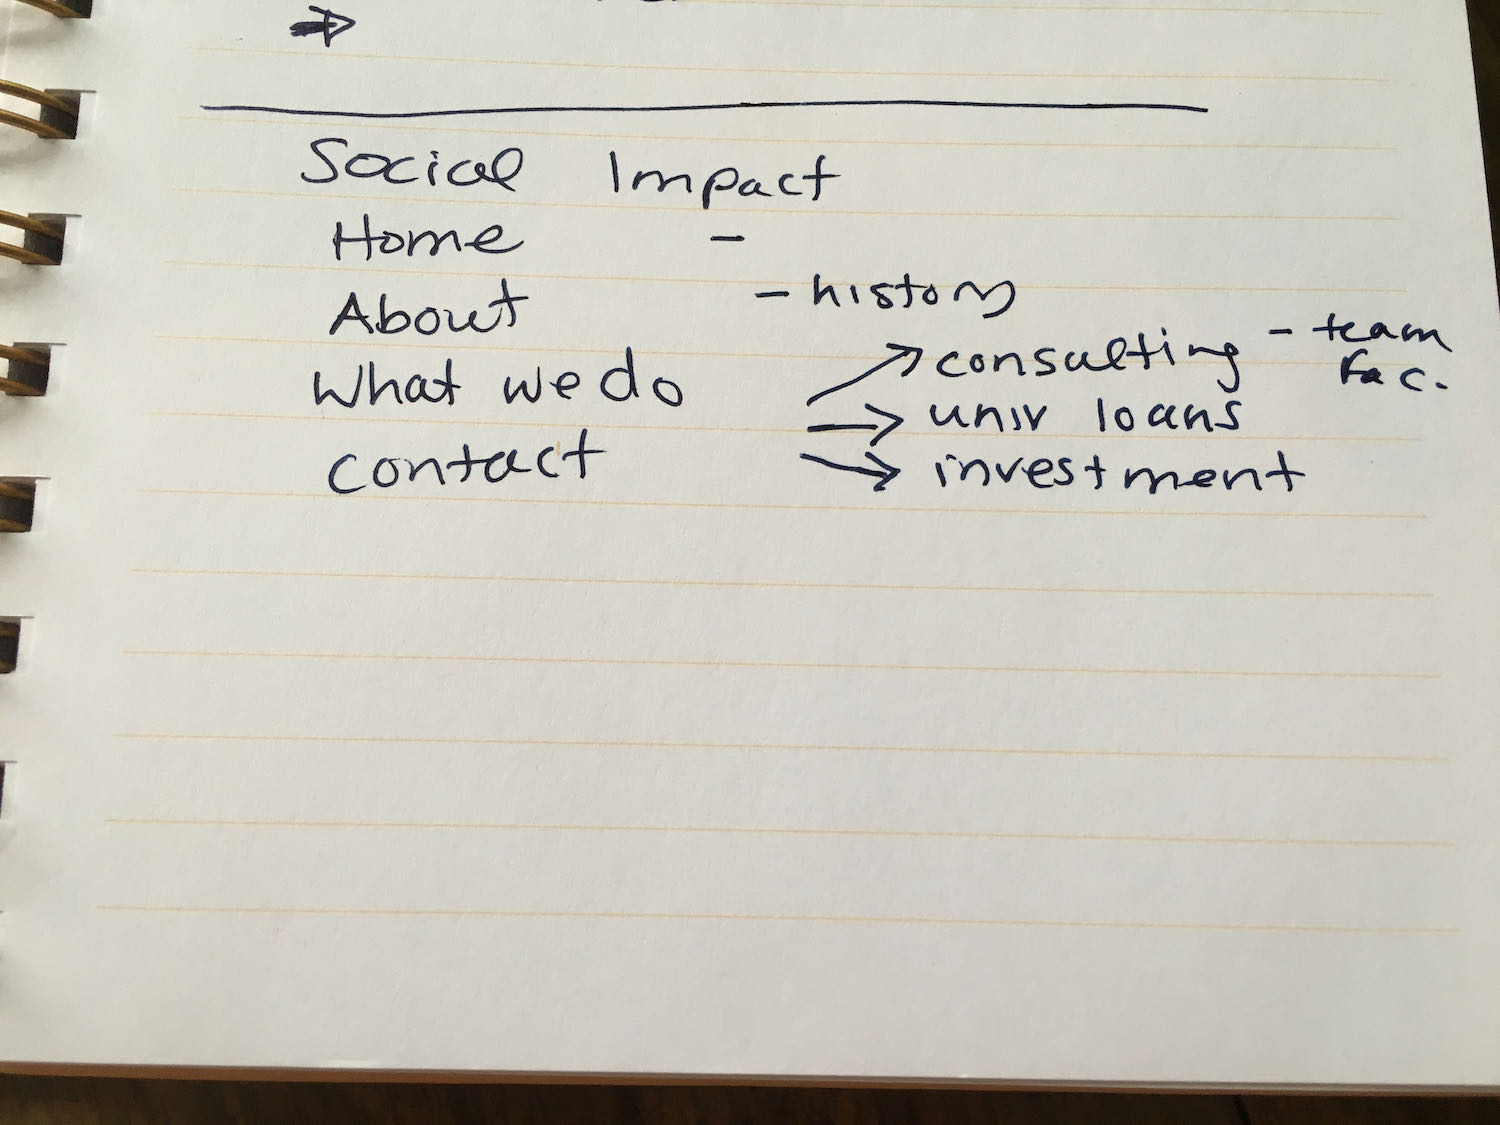 Social Impact
Home -
About - history
What we do → consulting - team fac.
→ univ loans
contact → investment